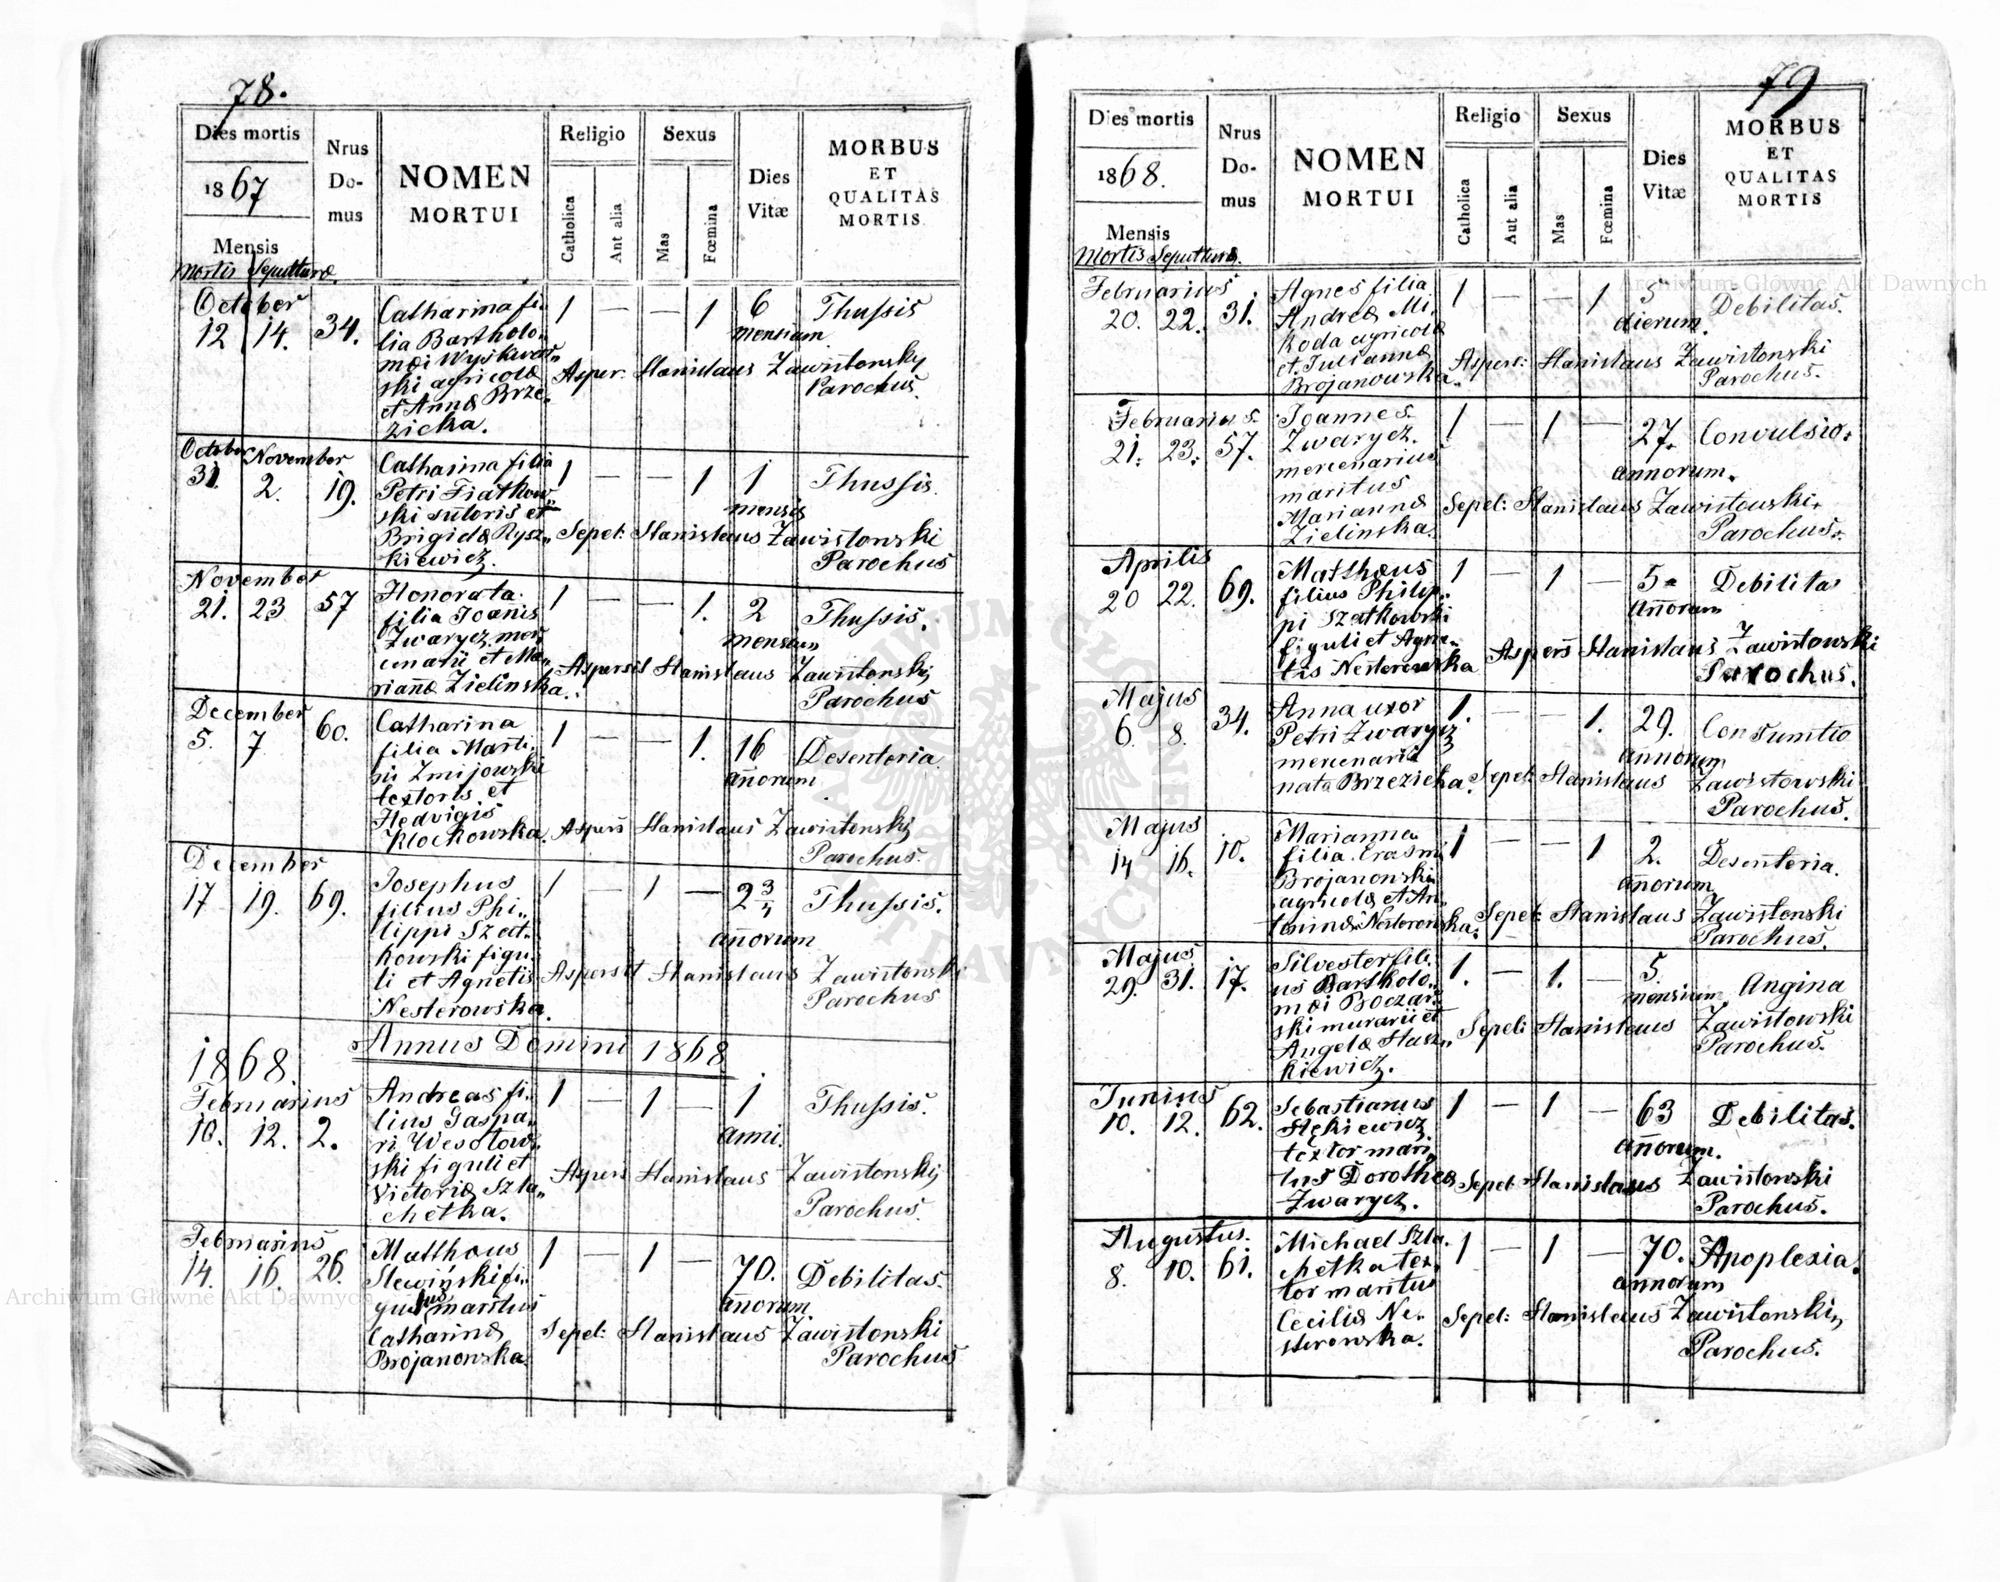 78.
Dies mortis
1867
Mensis
Mortis Sepulturæ
Nrus Do- mus
NOMEN MORTUI
Religio
Catholica
Aut alia
Sexus
Mas
Fœmina
Dies Vitæ
MORBUS ET QUALITAS MORTIS.
October
12 14. 34.
Catharina fi-
lia Bartholo-
mæi
ski agricolæ
et Annæ Brze-
zicka.
1 — — 1 6 mensium Thussis
Asper: Stanislaus Zawistonsky
Parochus.
October November
31. 2. 19.
Catharina filia
Petri Fiatkow„
ski sutoris et
Brigidæ Rysz„
kiewicz.
1 — — 1 1 mensis Thussis.
Sepel: Stanislaus Zawistowski
Parochus
November
21. 23 57
Honorata
filia Joanis
Zwarycz mer„
cenarii et Ma„
riannæ Zielinska.
1 — — 1. 2 mensium Thussis.
Aspersit Stanislaus Zawistonskij
Parochus
December
5. 7 60.
Catharina
filia Marti„
ni Zmijowski
textoris et
Hedvigis
Klochowska.
1 — — 1. 16 añorum Desenteria.
Aspers Stanislaus Zawistonskij
Parochus.
December
17 19. 69.
Josephus
filius Phi„
lippi Szat„
kowski figu„
li et Agnetis
Nesterowska.
1 — 1 — 2 3/4 añorum Thussis.
Aspersit Stanislaus Zawistonski
Parochus
1868. Annus Domini 1868
Februarius
10. 12. 2.
Andreas fi„
lius Gaspa„
ri Wesotow„
ski figuli et
Victoriæ Szla„
chetka.
1 — 1 — 1 anni. Thussis.
Aspers Stanislaus Zawistonskij
Parochus.
Februarius
14. 16. 26.
Matthæus
Slewiński fi„
gulus maritus
Catharinæ
Brojanowska.
1 — 1 — 70. añorum Debilitas.
Sepel: Stanislaus Zawistonski
Parochus
79
Dies mortis
1868.
Mensis
Mortis Sepulturæ.
Nrus Do- mus
NOMEN MORTUI
Religio
Catholica
Aut alia
Sexus
Mas
Fœmina
Dies Vitæ
MORBUS ET QUALITAS MORTIS
Februarius
20. 22. 31.
Agnes filia
Andreæ Mi„
koda agricolæ
et Juliannæ
Brojanowska.
1 — — 1 5 dierum. Debilitas.
Aspers: Stanislaus Zawistonski
Parochus.
Februarius.
21. 23. 57.
Joannes
Zwarycz.
mercenarius
maritus
Mariannæ
Zielinska.
1 — 1 — 27. annorum. Convulsio.
Sepel: Stanislaus Zawistowski.
Parochus.
Aprilis
20 22. 69.
Matthæus
filius Philip„
pi Szatkowski
figuli et Agne„
tis Nesterowska
1 — 1 — 5 añorum Debilitas
Aspers Stanislaus Zawistowski
Parochus.
Majus
6. 8. 34.
Anna uxor
Petri Zwarycz
mercenarii
nata Brzezicka.
1. — — 1. 29. annorum Consumtio
Sepel: Stanislaus Zawistowski
Parochus.
Majus
14 16. 10.
Marianna
filia Erasmi
Brojanonski
agricolæ et An„
toninæ Nesterowska.
1 — — 1 2. añorum Desenteria.
Sepel: Stanislaus Zawistonski
Parochus.
Majus
29. 31. 17.
Silvester fili„
us Bartholo„
mæi Boczar„
ski murarii et
Angelæ Stasz„
kiewicz.
1. — 1. — 5. mensium. Angina
Sepel: Stanislaus Zawistowski
Parochus.
Junius
10. 12. 62.
Sebastianus
Stękiewicz
textor mari„
tus Dorotheæ
Zwarycz.
1 — 1 — 63 añorum. Debilitas.
Sepel: Stanislaus Zawistonski
Parochus.
Augustus.
8. 10. 61.
Michael Szla„
chetka tex„
tor maritus
Ceciliæ Ne„
sterowska.
1 — 1 — 70. annorum Apoplexia.
Sepel: Stanislaus Zawistonski„
Parochus.
Archiwum Główne Akt Dawnych
Archiwum Główne Akt Dawnych
ARCHIWUM GŁÓWNE AKT DAWNYCH